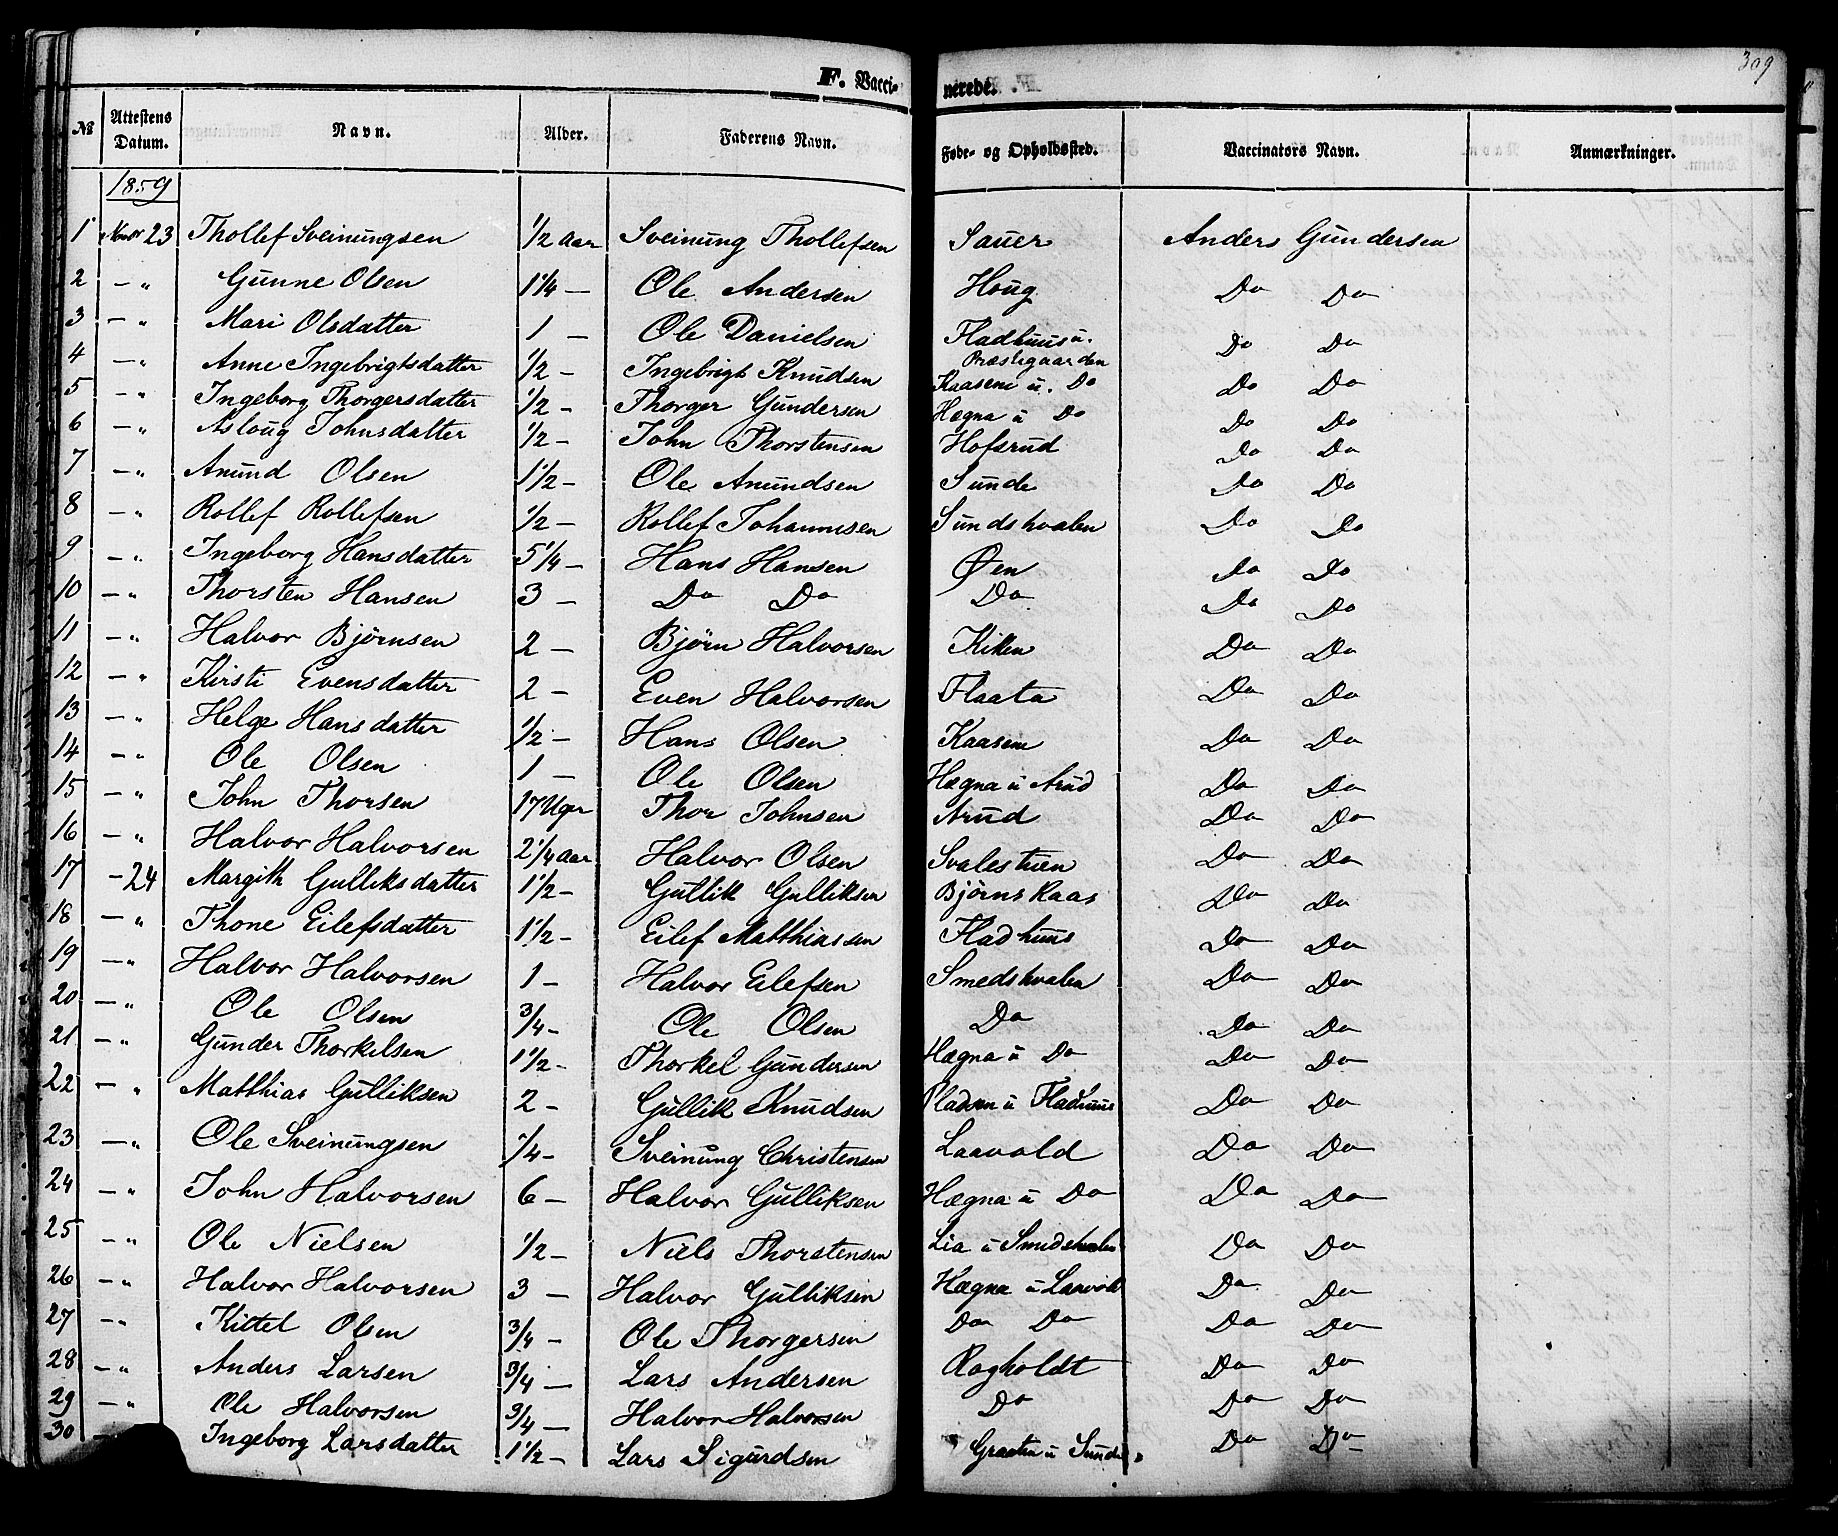 309
F. Vaccinerede.
№ | Attestens Datum. | Navn. | Alder. | Faderens Navn. | Føde- og Opholdssted. | Vaccinators Navn. | Anmærkninger.
1859
1 | Novbr 23 | Thollef Sveinungsen | 1/2 Aar | Sveinung Thollefsen | Sauer | Anders Gundersen
2 | — " | Gunne Olsen | 1 1/4 — | Ole Andersen | Houg | Do Do
3 | — " | Mari Olsdatter | 1 — | Ole Danielsen | Fladhuus u. Præstegaarden | Do Do
4 | — " | Anne Ingebrigtsdatter | 1/2 — | Ingebrigt Knudsen | Kaasene u. Do | Do Do
5 | — " | Ingeborg Thorgersdatter | 1/2 — | Thorger Gundersen | Hægna u Do | Do Do
6 | — " | Asloug Johnsdatter | 1/2 — | John Thorstensen | Hofsrud | Do Do
7 | — " | Anund Olsen | 1 1/2 — | Ole Anundsen | Sunde | Do Do
8 | — " | Rollef Rollefsen | 1/2 — | Rollef Johannesen | Sundshvalen | Do Do
9 | — " | Ingeborg Hansdatter | 5 1/4 — | Hans Hansen | Øen | Do Do
10 | — " | Thorsten Hansen | 3 — | Do Do | Do | Do Do
11 | — " | Halvor Bjørnsen | 2 — | Bjørn Halvorsen | Kiken | Do Do
12 | — " | Kirsti Evensdatter | 2 — | Even Halvorsen | Flaata | Do Do
13 | — " | Helge Hansdatter | 1/2 — | Hans Olsen | Kaasene | Do Do
14 | — " | Ole Olsen | 1 — | Ole Olsen | Hægna u Arud | Do Do
15 | — " | John Thorsen | 17 Uger | Thor Johnsen | Arud | Do Do
16 | — " | Halvor Halvorsen | 2 1/4 Aar | Halvor Olsen | Svalestuen | Do Do
17 | — 24 | Margith Gulliksdatter | 1 1/2 — | Gullik Gulliksen | Bjørnskaas | Do Do
18 | — " | Thone Eilefsdatter | 1 1/2 — | Eilef Matthiassen | Fladhuus | Do Do
19 | — " | Halvor Halvorsen | 1 — | Halvor Eilefsen | Smedshvalen | Do Do
20 | — " | Ole Olsen | 3/4 — | Ole Olsen | Do | Do Do
21 | — " | Gunder Thorkelsen | 1 1/2 — | Thorkel Gundersen | Hægna u Do | Do Do
22 | — " | Matthias Gulliksen | 2 — | Gullik Knudsen | Pladsen u Fladhuus | Do Do
23 | — " | Ole Sveinungsen | 1/4 — | Sveinung Christensen | Laavold | Do Do
24 | — " | John Halvorsen | 6 — | Halvor Gulliksen | Hægna u Do | Do Do
25 | — " | Ole Nielsen | 1/2 — | Niels Thorstensen | Lia u Smedshvalen | Do Do
26 | — " | Halvor Halvorsen | 3 — | Halvor Gulliksen | Hægna u Laavold | Do Do
27 | — " | Kittel Olsen | 3/4 — | Ole Thorgersen | Do Do | Do Do
28 | — " | Anders Larsen | 3/4 — | Lars Andersen | Ragholdt | Do Do
29 | — " | Ole Halvorsen | 3/4 — | Halvor Halvorsen | Do | Do Do
30 | — | Ingeborg Larsdatter | 1 1/2 — | Lars Sigurdsen | u Sunde | Do Do